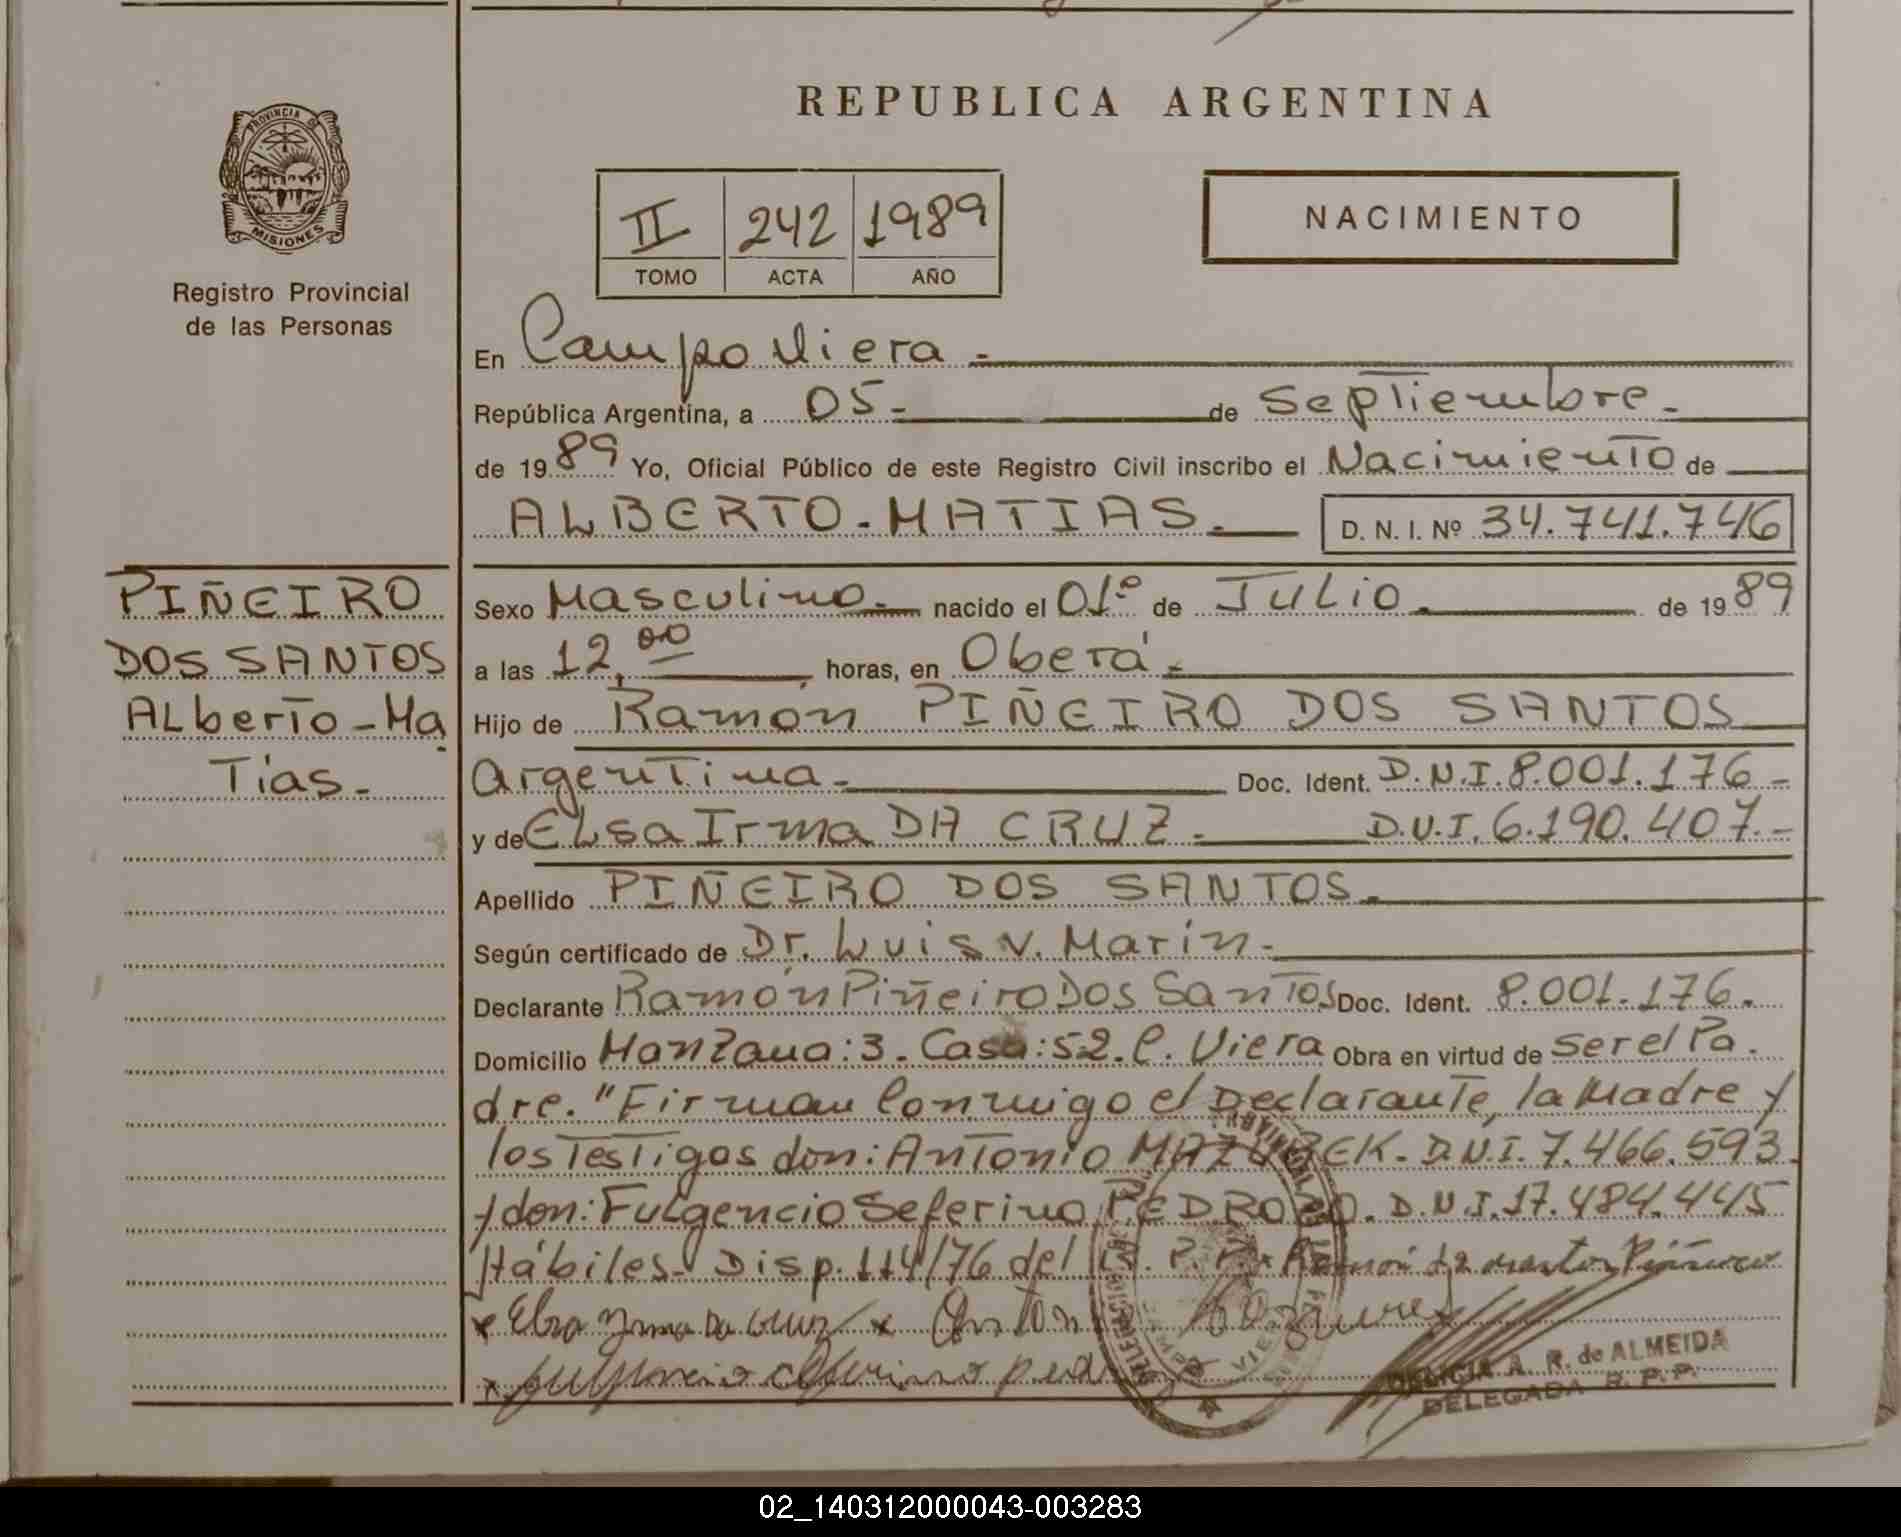 REPUBLICA ARGENTINA
PROVINCIA DE
MISIONES
Registro Provincial
de las Personas
II 242 1989
TOMO ACTA AÑO
NACIMIENTO
En Campo Viera.-
República Argentina, a 05- de Septiembre.-
de 1989 Yo, Oficial Público de este Registro Civil inscribo el Nacimiento de
ALBERTO-MATIAS.- D. N. I. Nº 34.741.746
PIÑEIRO
DOS SANTOS
ALberto-Ma
Tías.-
Sexo Masculino.- nacido el 01º de JULio.- de 1989
a las 12,00 horas, en Oberá.-
Hijo de Ramón PIÑEIRO DOS SANTOS
Argentina.- Doc. Ident. D.N.I. 8.001.176.-
y de ELsa Irma DA CRUZ.- D.N.I. 6.190.407.-
Apellido PIÑEIRO DOS SANTOS.-
Según certificado de Dr. Luis V. Marín.-
Declarante Ramón Piñeiro Dos Santos Doc. Ident. 8.001.176.
Domicilio Manzana:3. Casa:52. C. Viera Obra en virtud de Ser el Pa.
dre. "Firman Conmigo el Declarante, la Madre y
los Testigos don: Antonio MAZUREK. D.N.I. 7.466.593.
y don: Fulgencio Seferino PEDROZO. D.N.I. 17.484.445
Hábiles. Disp. 114/76 del R. P. P. x Ramón Piñeiro
x Elsa Irma Da Cruz x
x
DELICIA A. R. de ALMEIDA
DELEGADA R. P. P.
02_140312000043-003283